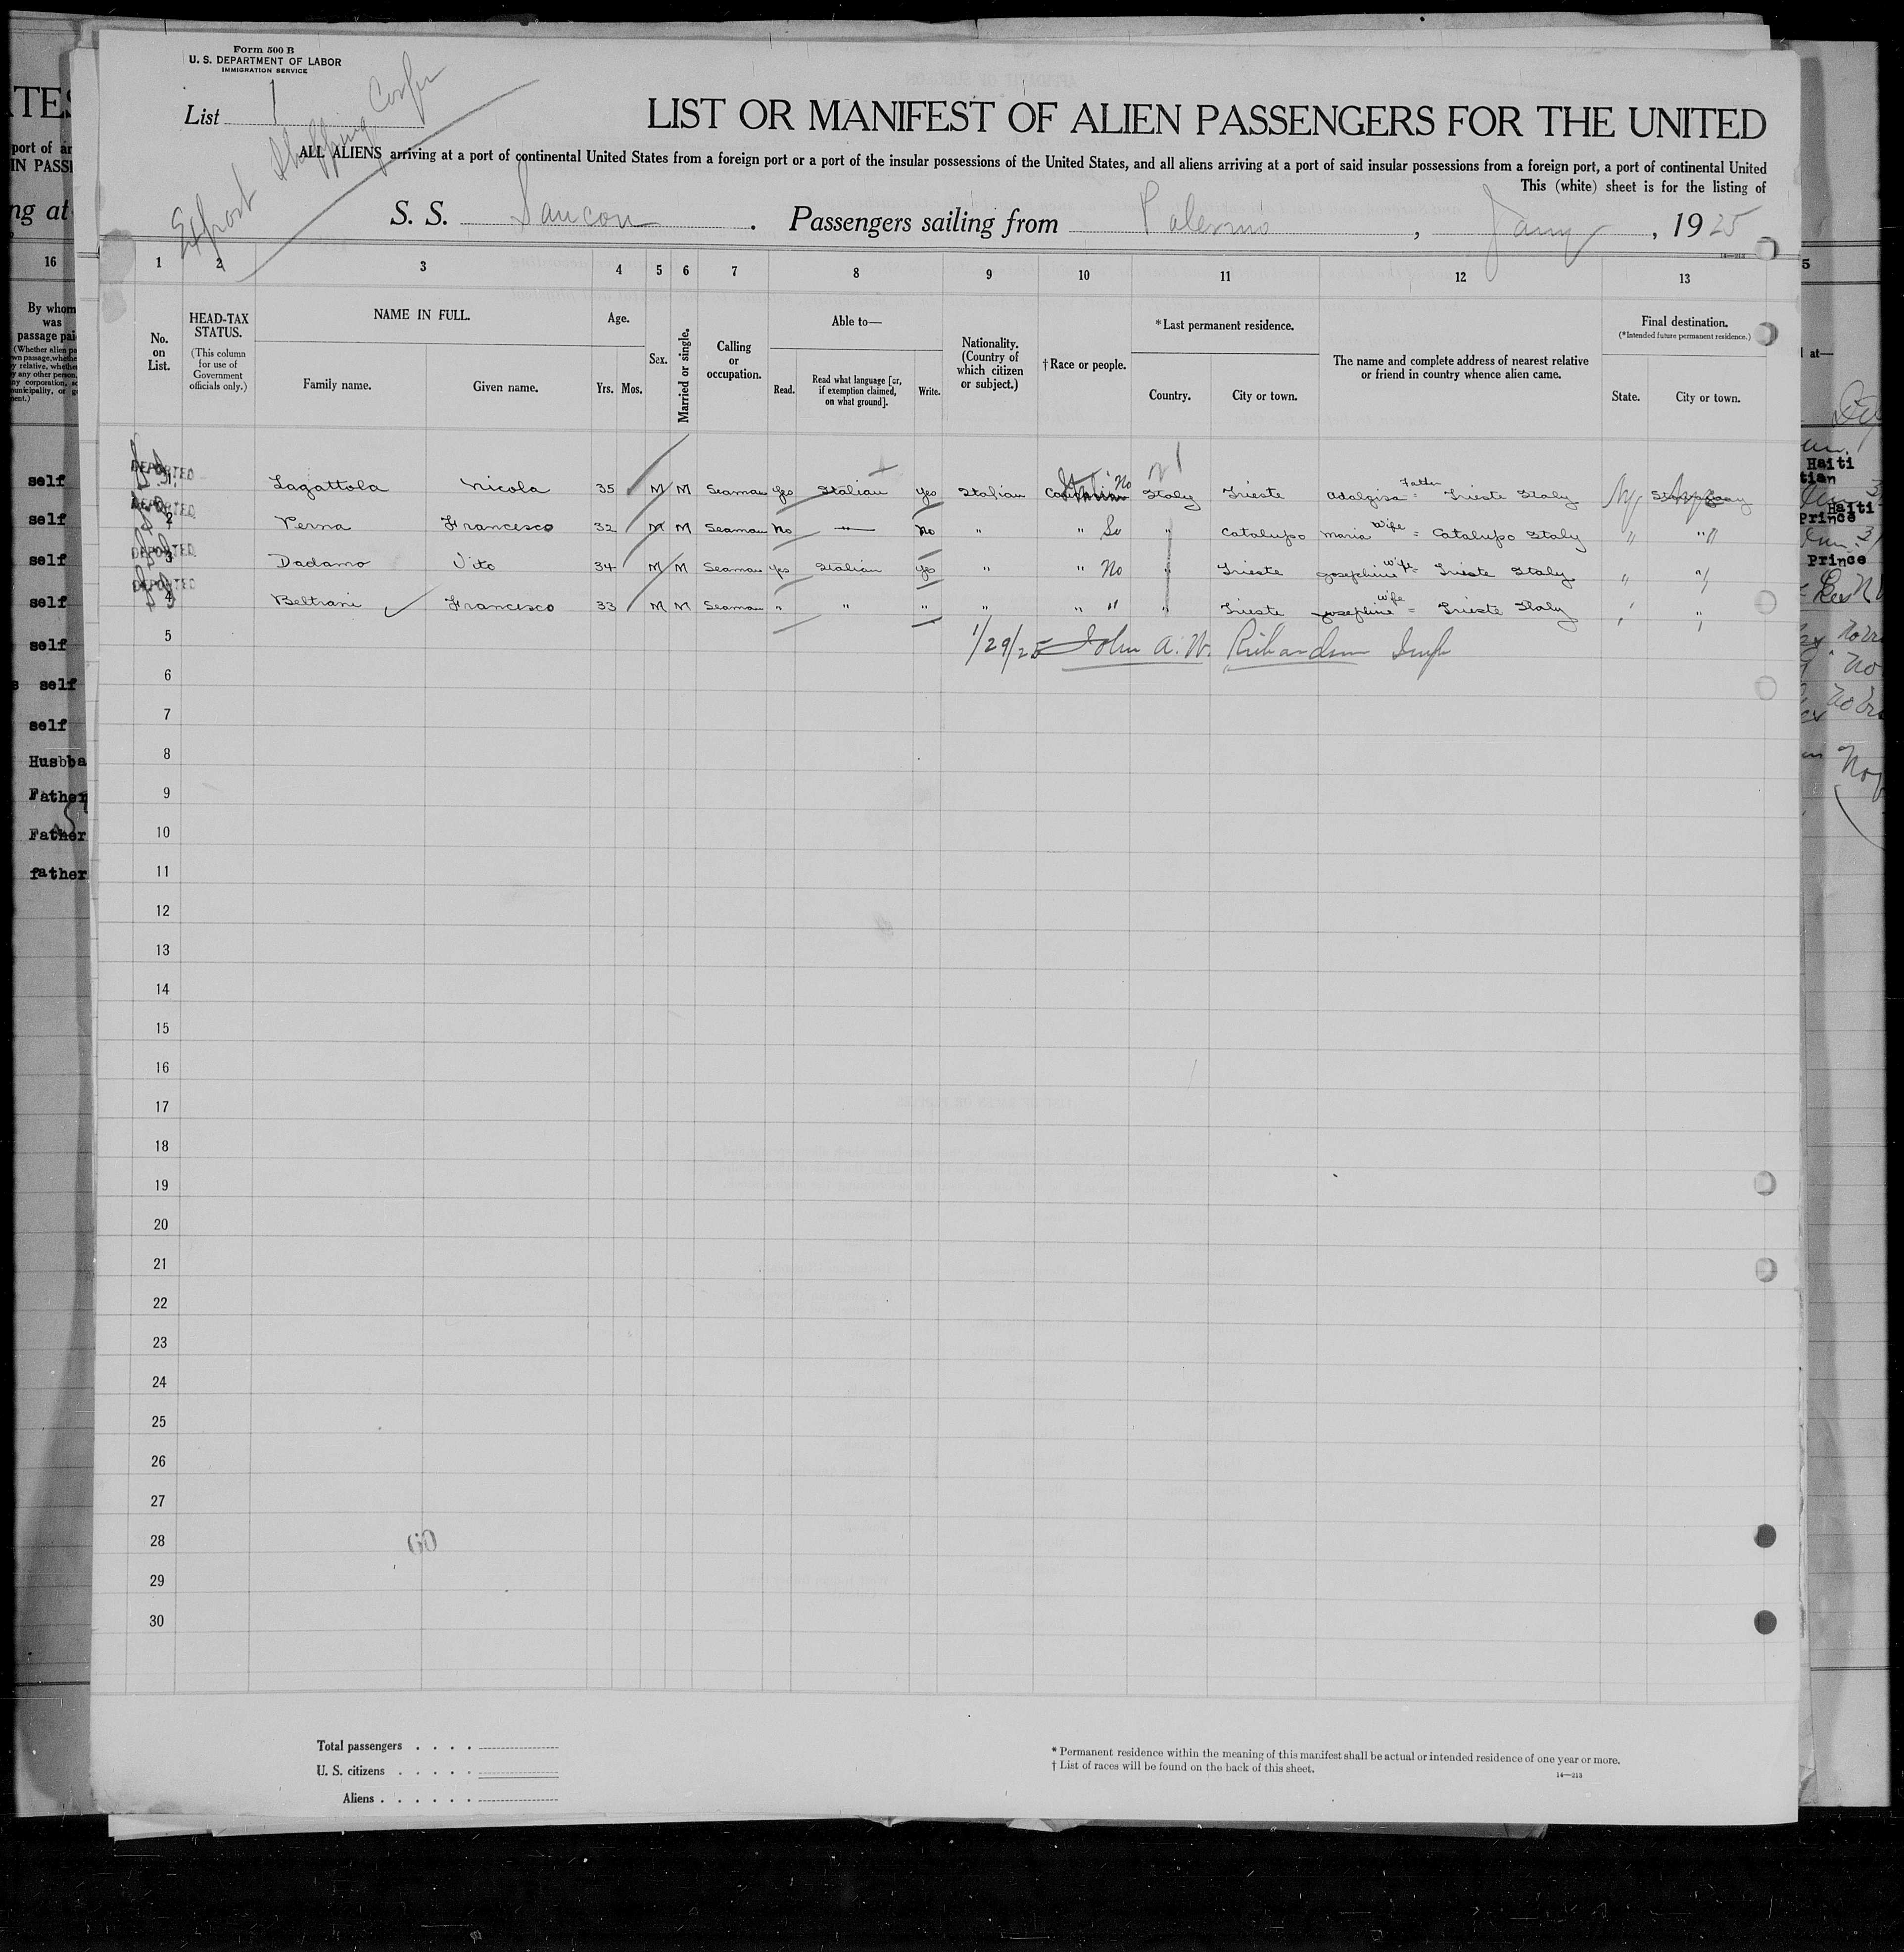 Form 500 B
U. S. DEPARTMENT OF LABOR
IMMIGRATION SERVICE
List 1
Export Shipping Corpn
LIST OR MANIFEST OF ALIEN PASSENGERS FOR THE UNITED
ALL ALIENS arriving at a port of continental United States from a foreign port or a port of the insular possessions of the United States, and all aliens arriving at a port of said insular possessions from a foreign port, a port of continental United
This (white) sheet is for the listing of
S. S. Saucon . Passengers sailing from Palermo , Jany , 1925
14—213
1 2 3 4 5 6 7 8 9 10 11 12 13
No. on List.
HEAD-TAX STATUS.
(This column for use of Government officials only.)
NAME IN FULL.
Family name. Given name.
Age.
Yrs. Mos.
Sex.
Married or single.
Calling or occupation.
Able to—
Read. Read what language [or, if exemption claimed, on what ground]. Write.
Nationality. (Country of which citizen or subject.)
†Race or people.
*Last permanent residence.
Country. City or town.
The name and complete address of nearest relative or friend in country whence alien came.
Final destination.
(*Intended future permanent residence.)
State. City or town.
DEPORTED 1 Lagattola Nicola 35 M M Seaman Yes Italian Yes Italian Italian No Italy Trieste Adalgisa Father = Trieste Italy NY
DEPORTED 2 Perna Francesco 32 M M Seaman No — " — No " " So " Catalupo Maria Wife = Catalupo Italy " "
DEPORTED 3 Dadamo Vito 34 M M Seaman Yes Italian Yes " " No " Trieste Josephine Wife = Trieste Italy " "
DEPORTED 4 Beltrani Francesco 33 M M Seaman " " " " " " " Trieste Josephine Wife = Trieste Italy " "
5
1/29/25 John A. W. Richardson Insp
6
7
8
9
10
11
12
13
14
15
16
17
18
19
20
21
22
23
24
25
26
27
28
29
30
60
Total passengers . . . .
U. S. citizens . . . . .
Aliens . . . . . .
* Permanent residence within the meaning of this manifest shall be actual or intended residence of one year or more.
† List of races will be found on the back of this sheet.
14—213
16
By whom was passage pai
self
self
self
self
self
self
self
Husba
Father
Father
father
Haiti
Haiti
Prince
Prince